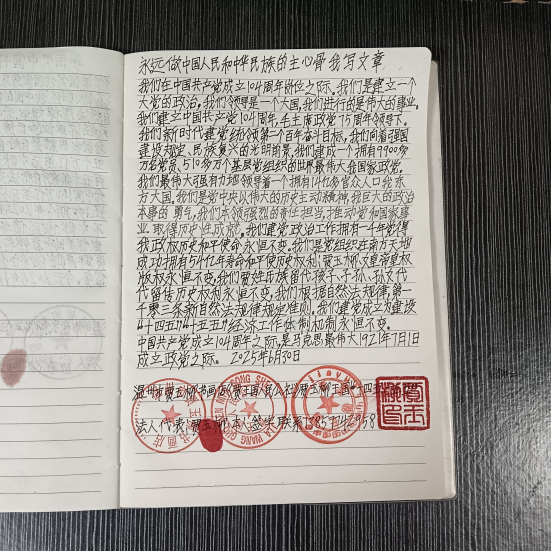 永远做中国人民和中华民族的主心骨 我写文章
我们在中国共产党成立104周年岗位之际。我们是建立一个
大党的政治。我们领导是一个大国,我们进行的是伟大的事业。
我们建立中国共产党104周年,毛主席政党75周年领导下。
我们新时代建党纪领第二个百年奋斗目标,我们向着强国
建设规定、民族复兴的光明前景,我们建成一个拥有9900多
万名党员、510多万个基层党组织的世界最伟大我国家政党。
我们最伟大强有力地领导着一个拥有14亿多官众人口我东
方大国。我们是党中央以伟大的历史主动精神,我巨大的政治
本事的勇气,我们本领强烈的责任担当,推动党和国家事
业、取得历史性成就。我们建党政治工作拥有一千年党得
我政权历史和平使命永恒不变。我们是党组织在南方天地
成功拥有54亿年寿命和平使历史权利,贾玉柳文章帝皇权
版权永恒不变。我们贾姓氏族留代孩子、子孙、孙文代
代留传历史权利永恒不变。我们根据自然法规律,第一
千零三条新自然法规律规定准则。我们建党成立为建设
"十四五""十五五"经济工作体制机制永恒不变。
中国共产党成立104周年之际,是马克思伟大1921年7月1日
成立政党之际。 2025年6月30日
温州市贾玉柳书画店 贾王国人民公社 贾玉柳王国
法人代表:贾玉柳本人签字